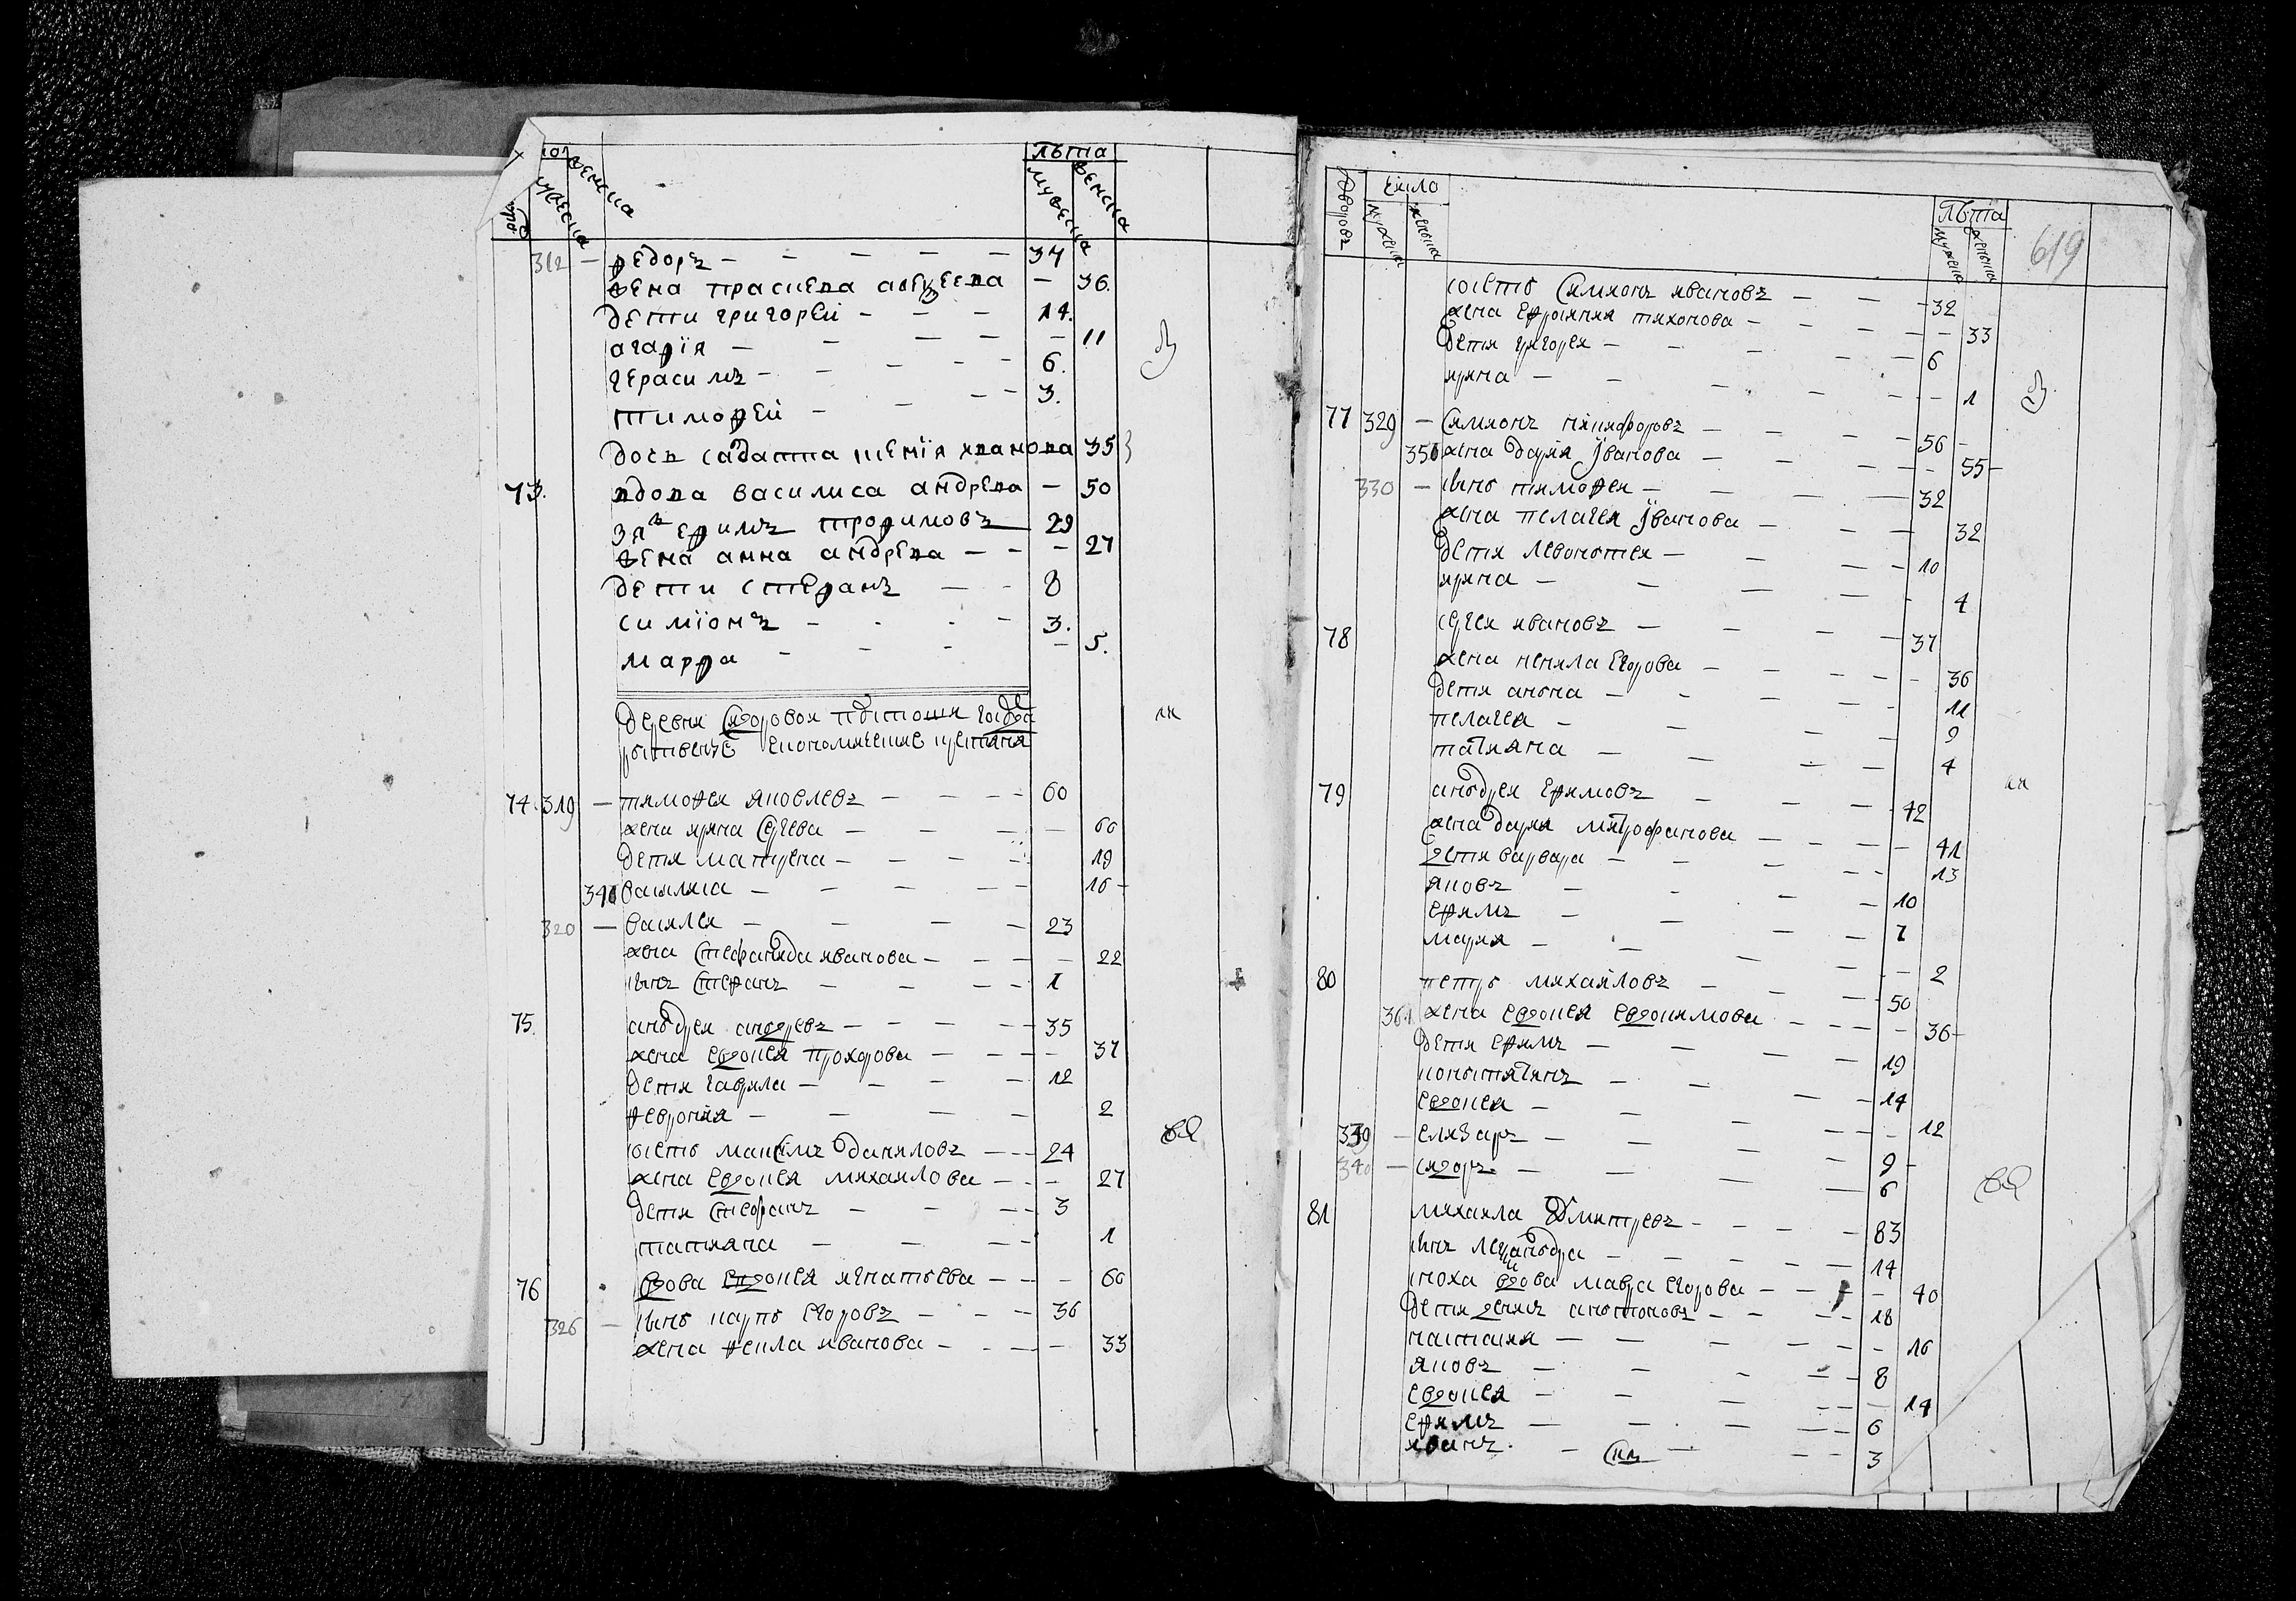 лѣта
мужеска
женска
312 — Федоръ — 37
жена прасковя алексеева — 36.
дети григорей — 14.
агафїя — 11
герасимъ — 6.
тимофей — 3.
дочь салдатка ивановa 35
73. вдова василиса андрева — 50
зят ефимъ трофимовъ — 29
жена анна андрева — 27
дети степанъ — 8
симїонъ — 3.
марфа — 5.
деревня
74. 319 — тимофей яковлевъ — 60
жена ирина сергева — 60
дети матрена — 19
василиса — 16
320 — василей — 23
жена степанида иванова — 22
сынъ степанъ — 1
75. анъдрей андревъ — 35
жена евдокея прохорова — 37
дети гаврила — 12
феврония — 2
максимъ даниловъ — 24
жена евдокея михаилова — 27
дети степанъ — 3
татияна — 1
76 вдова евдокея игнатьева — 60
326 — сынъ карпъ егоровъ — 36
жена фекла иванова — 33
619
дворовъ
число
мужеска
женска
лѣта
мужеска
женска
симионъ ивановъ — 32
жена ефросиния тихонова — 33
дети григорей — 6
ирина — 1
77 329 — Симионъ никифоровъ — 56
жена дария Ївановa — 55
330 — сынъ тимофей — 32
жена пелагея Їванова — 32
дети левонтей — 10
ирина — 4
78 сергей ивановъ — 37
жена некила егорова — 36
дети анъна — 11
пелагея — 9
татияна — 4
79 анъдрей ефимовъ — 42
жена дария митрофанова — 41
дети варвара — 13
яковъ — 10
ефимъ — 7
мария — 2
80 петръ михаиловъ — 50
361 жена евдокея евдокимова — 36
дети ефимъ — 19
констятинъ — 14
евдокея — 12
339 — елизаръ — 9
340 — сидоръ — 6
81 михаила дмитревъ — 83
сынъ — 14
сноха вдова мавра егорова — 40
дети денисъ антоновъ — 18
настасия — 16
яковъ — 8
евдокея — 14
ефимъ — 6
иванъ — 3